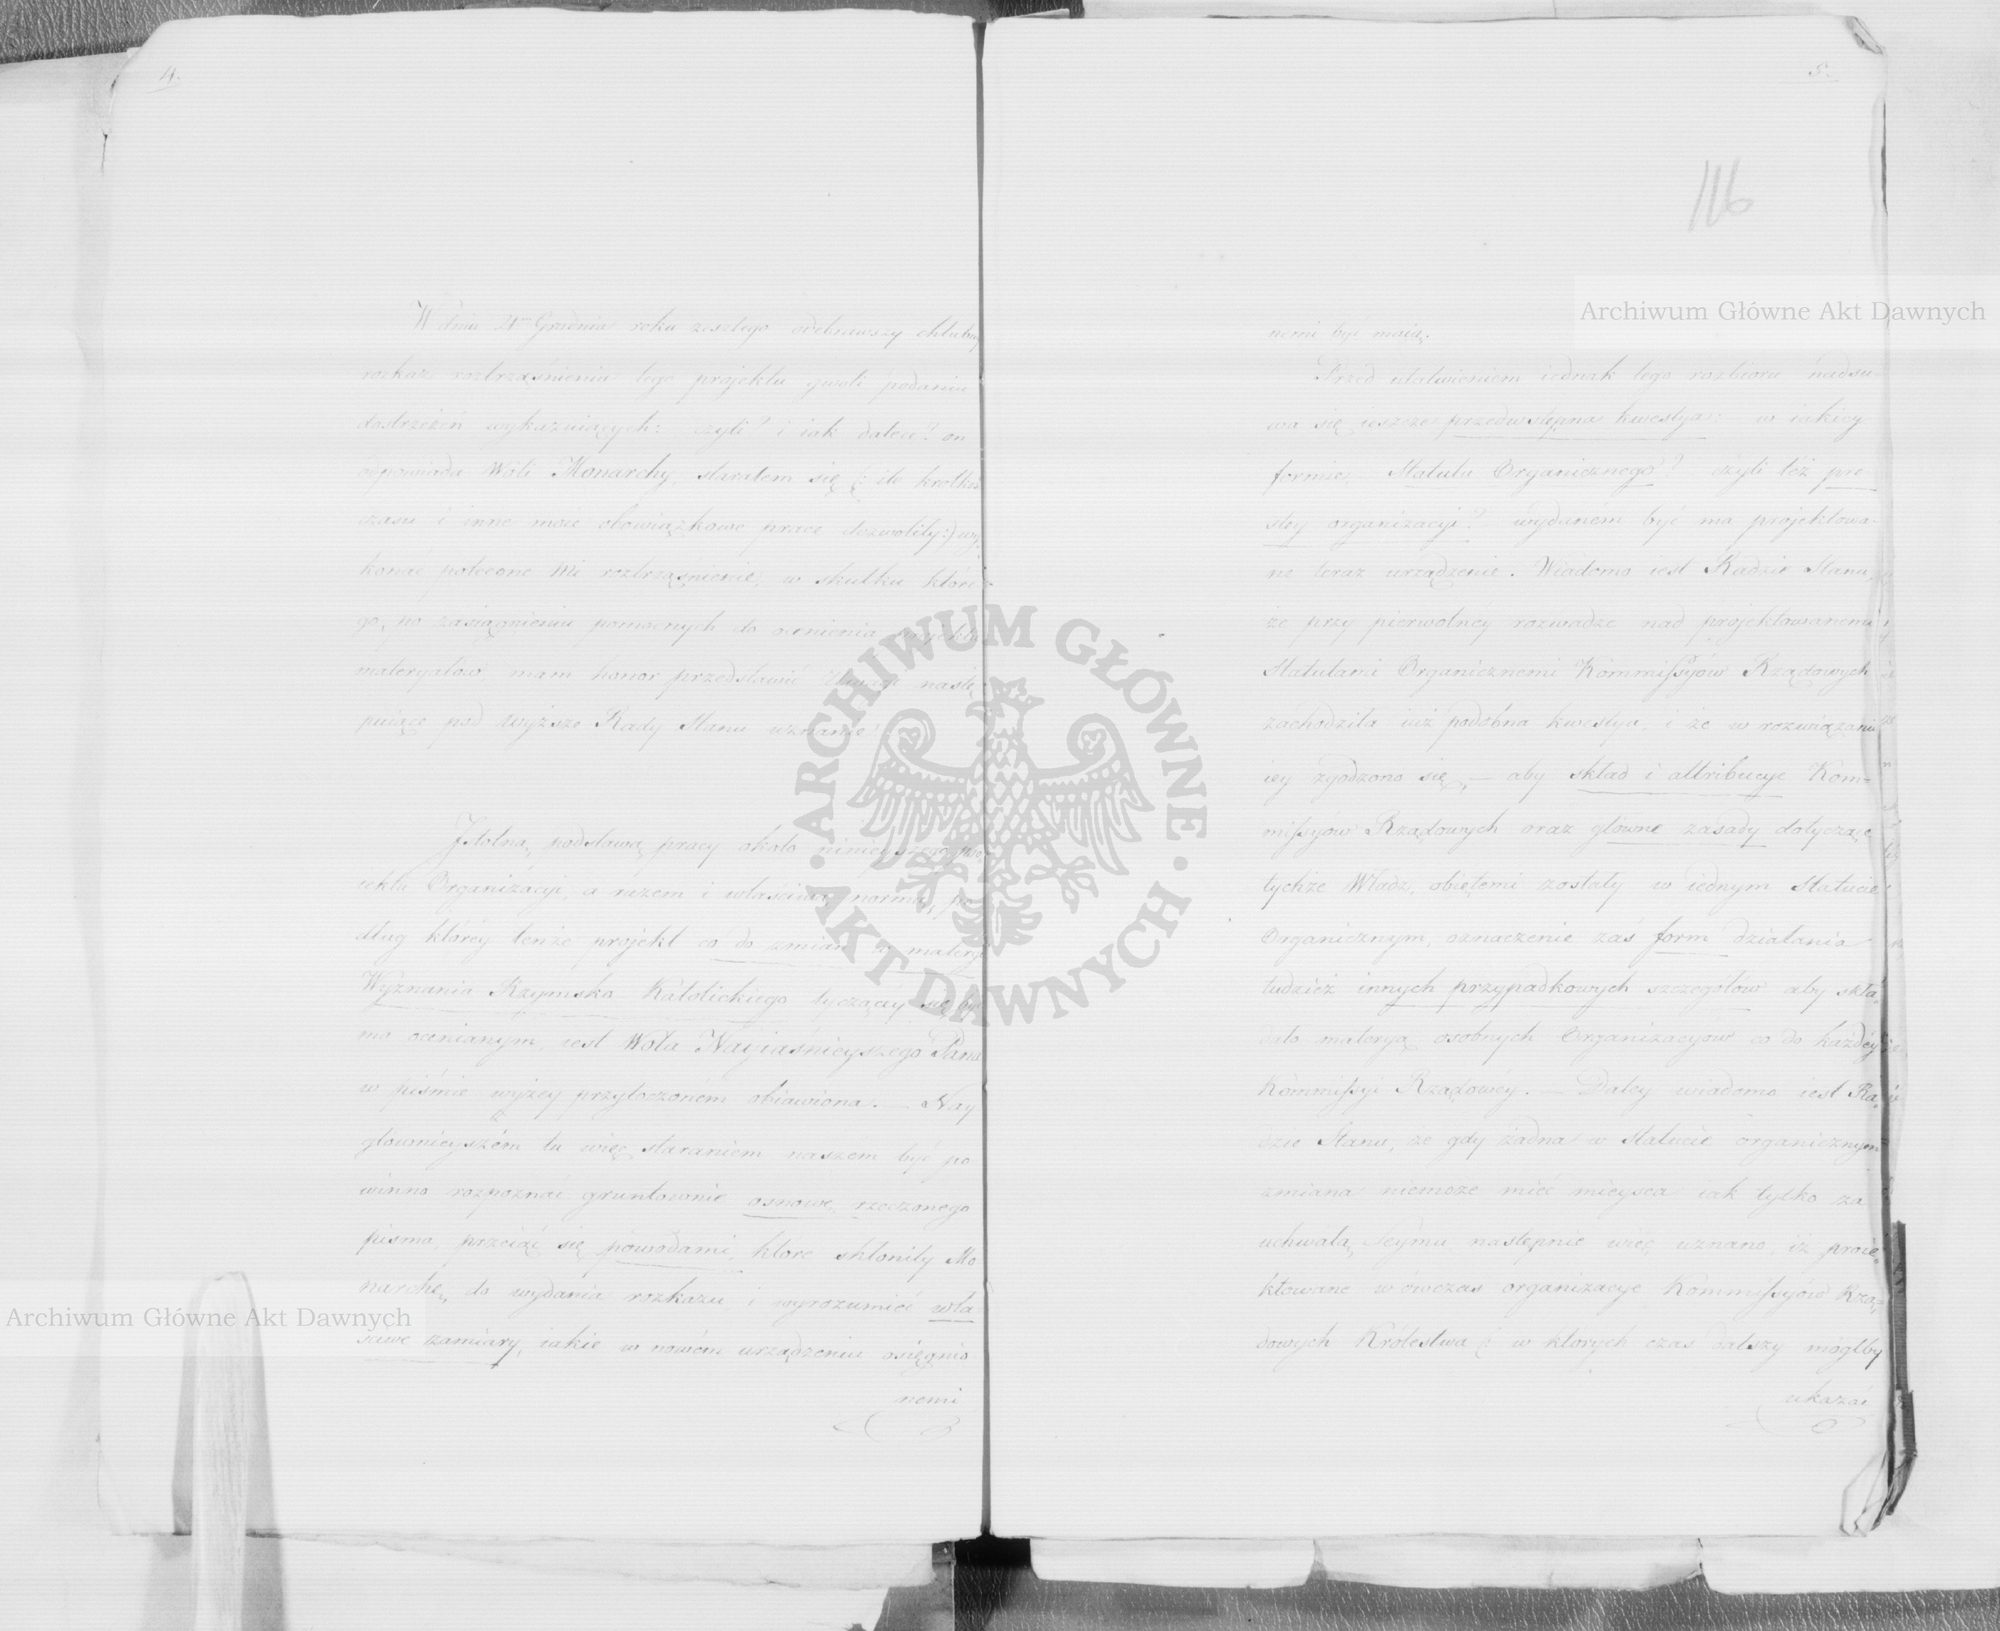 4.
W dniu 21m Grudnia roku zeszłego odebrawszy chlubny
rozkaz roztrząśnienia tego projektu gwoli podaniu
dostrzeżeń wykazuiących: czyli? i iak dalece? on
odpowiada Woli Monarchy, starałem się (: ile krótki
czasu i inne moie obowiązkowe prace dozwoliły:) wy-
konać polecone mi roztrząśnienie, w skutku które-
go, po zasiągnieniu pomocnych do ocenienia projektu
materyałów mam honor przedstawić Uwagi nastę-
puiące pod wyższe Rady Stanu uznanie.
Istotną podstawą pracy około ninieyszego pro-
iektu Organizacyi, a razem i właściwą normą, po-
dług którey tenże projekt co do zmian w materyi
Wyznania Rzymsko Katolickiego tyczącéy się, by
mo ocenianym, iest Wola Nayiaśnieyszego Pana
w piśmie wyżey przytoczoném obiawiona. — Nay
głównieyszém tu więc staraniem naszem być po-
winno rozpoznać gruntownie osnowę rzeczonego
pisma, przeiąć się powodami, które skłoniły Mo
narchę, do wydania rozkazu i wyrozumieć wła
ściwe zamiary, iakie w nowém urządzeniu osięgnio
nemi
5.
116
nemi być maią.
Przed ułatwieniem iednak tego rozbioru nadsu-
wa się ieszcze przedwstępna kwestya: w iakiey
formie, Statutu Organicznego? czyli téż pro
stey organizacyi? wydanem być ma projektowa-
ne teraz urządzenie. Wiadomo iest Radzie Stanu,
że przy pierwotnéy rozwadze nad projektowanemi
Statutami Organicznemi Kommissyów Rządowych
zachodziła iuż podobna kwestya, i że w rozwiązaniu
iey zgodzono się, — aby skład i attribucye Kom-
missyów Rządowych oraz główne zasady dotyczące
tychże Władz, obiętemi zostały w iednym Statucie
Organicznym, oznaczenie zaś form działania
tudzież innych przypadkowych szczegółów aby skła-
dało materyą osobnych Organizacyów co do każdéy
Kommissyi Rządowéy. — Daley wiadomo iest Ra-
dzie Stanu, że gdy żadna w Statucie organicznym
zmiana niemoże mieć mieysca iak tylko za
uchwałą Seymu, następnie więc uznano, iż proie-
ktowane wówczas organizacye Kommissyów Rzą-
dowych Królestwa (: w których czas dalszy mógłby
ukazać
Archiwum Główne Akt Dawnych
Archiwum Główne Akt Dawnych
ARCHIWUM GŁÓWNE AKT DAWNYCH